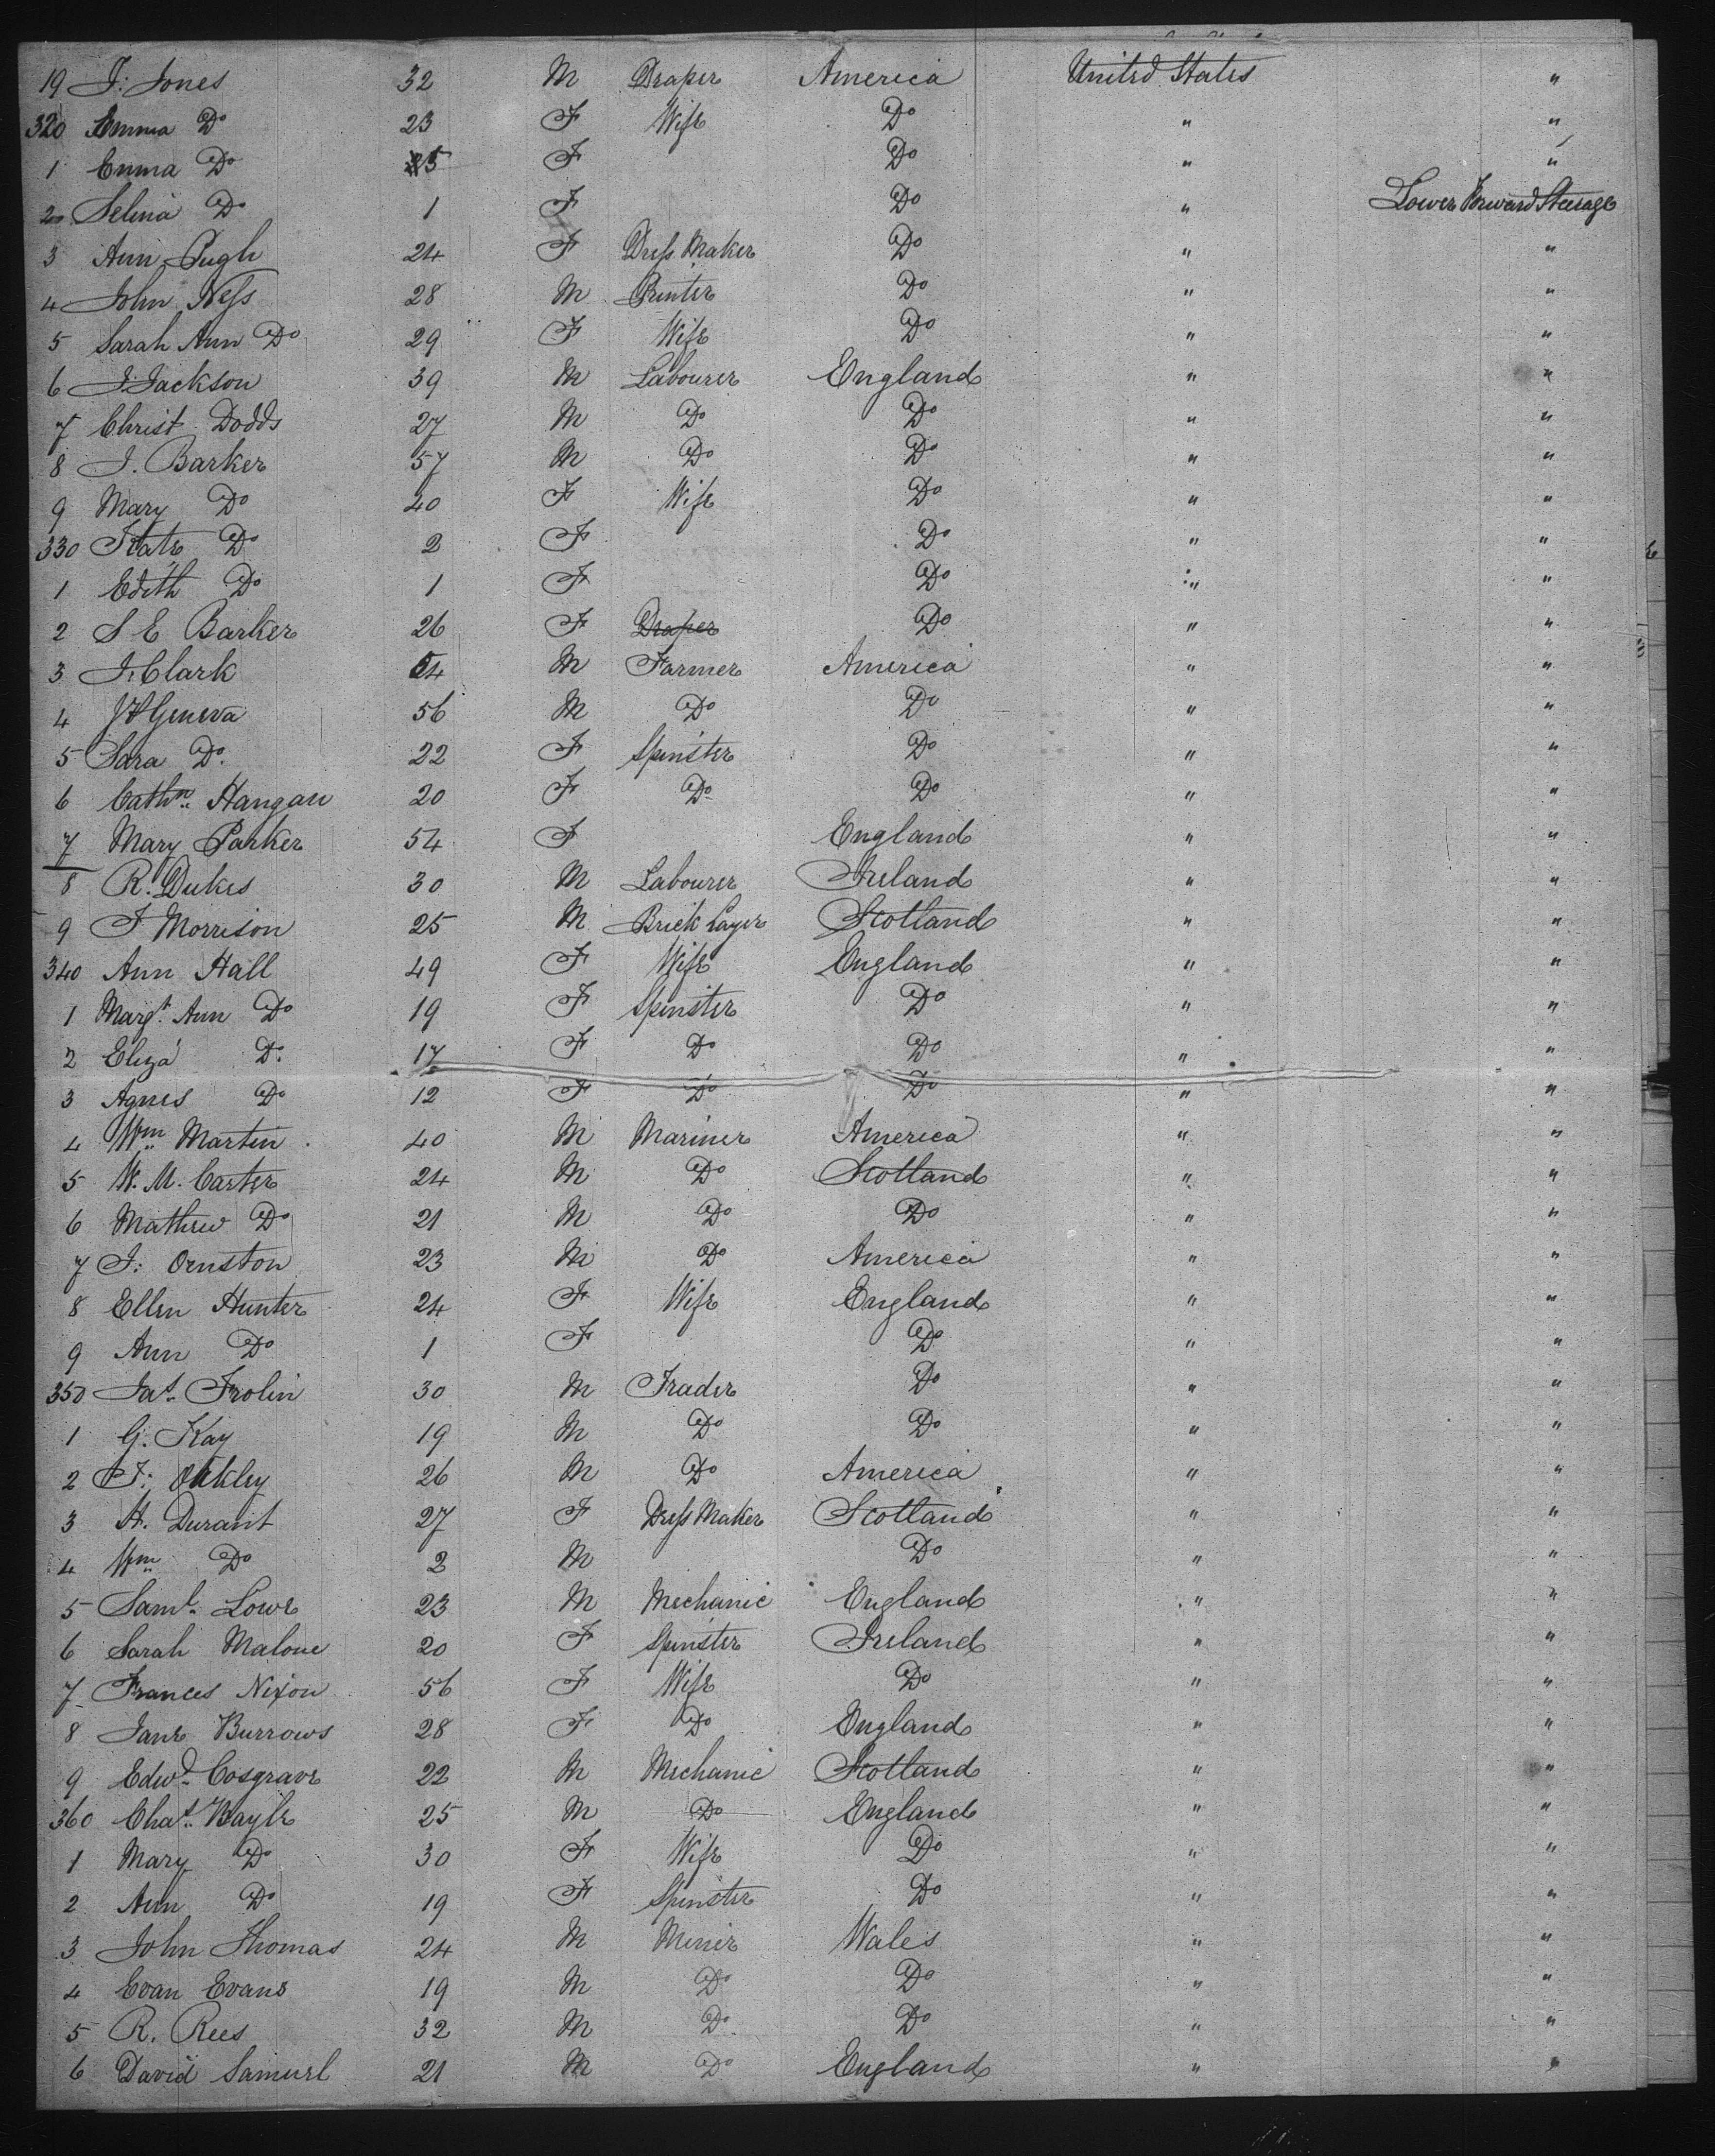 19 J. Jones 32 M Draper America United States "
320 Emma Do 23 F Wife Do " "
1 Emma Do 5 F Do " "
2 Selina Do 1 F Do " Lower Forward Steerage
3 Ann Pugh 24 F Dress Maker Do " "
4 John Ness 28 M Printer Do " "
5 Sarah Ann Do 29 F Wife Do " "
6 J. Jackson 39 M Labourer England " "
7 Christ Dodds 27 M Do Do " "
8 J. Barker 57 M Do Do " "
9 Mary Do 40 F Wife Do " "
330 Kate Do 2 F Do " "
1 Edith Do 1 F Do " "
2 S E Barker 26 F Draper Do " "
3 J. Clark 54 M Farmer America " "
4 Geneva 56 M Do Do " "
5 Sara Do. 22 F Spinster Do " "
6 Cathn. Hangan 20 F Do Do " "
7 Mary Parker 54 F England " "
8 R. Dukes 30 M Labourer Ireland " "
9 F Morrison 25 M Brick Layer Scotland " "
340 Ann Hall 49 F Wife England " "
1 Margt. Ann Do 19 F Spinster Do " "
2 Eliza Do. 17 F Do Do " "
3 Agnes Do 12 F Do Do " "
4 Wm. Martin 40 M Mariner America " "
5 W. M. Carter 24 M Do Scotland " "
6 Mathew Do 21 M Do Do " "
7 J. Ornston 23 M Do America " "
8 Ellen Hunter 24 F Wife England " "
9 Ann Do 1 F Do " "
350 Jas. Frolin 30 M Trader Do " "
1 G. Kay 19 M Do Do " "
2 J. Oakley 26 M Do America " "
3 H. Durant 27 F Dress Maker Scotland " "
4 Wm. Do 2 M Do " "
5 Saml. Lowe 23 M Mechanic England " "
6 Sarah Malone 20 F Spinster Ireland " "
7 Frances Nixon 56 F Wife Do " "
8 Jane Burrows 28 F Do England " "
9 Edwd. Cosgrave 22 M Mechanic Scotland " "
360 Chas. Bayle 25 M Do England " "
1 Mary Do 30 F Wife Do " "
2 Ann Do 19 F Spinster Do " "
3 John Thomas 24 M Miner Wales " "
4 Evan Evans 19 M Do Do " "
5 R. Rees 32 M Do Do " "
6 David Samuel 21 M Do England " "